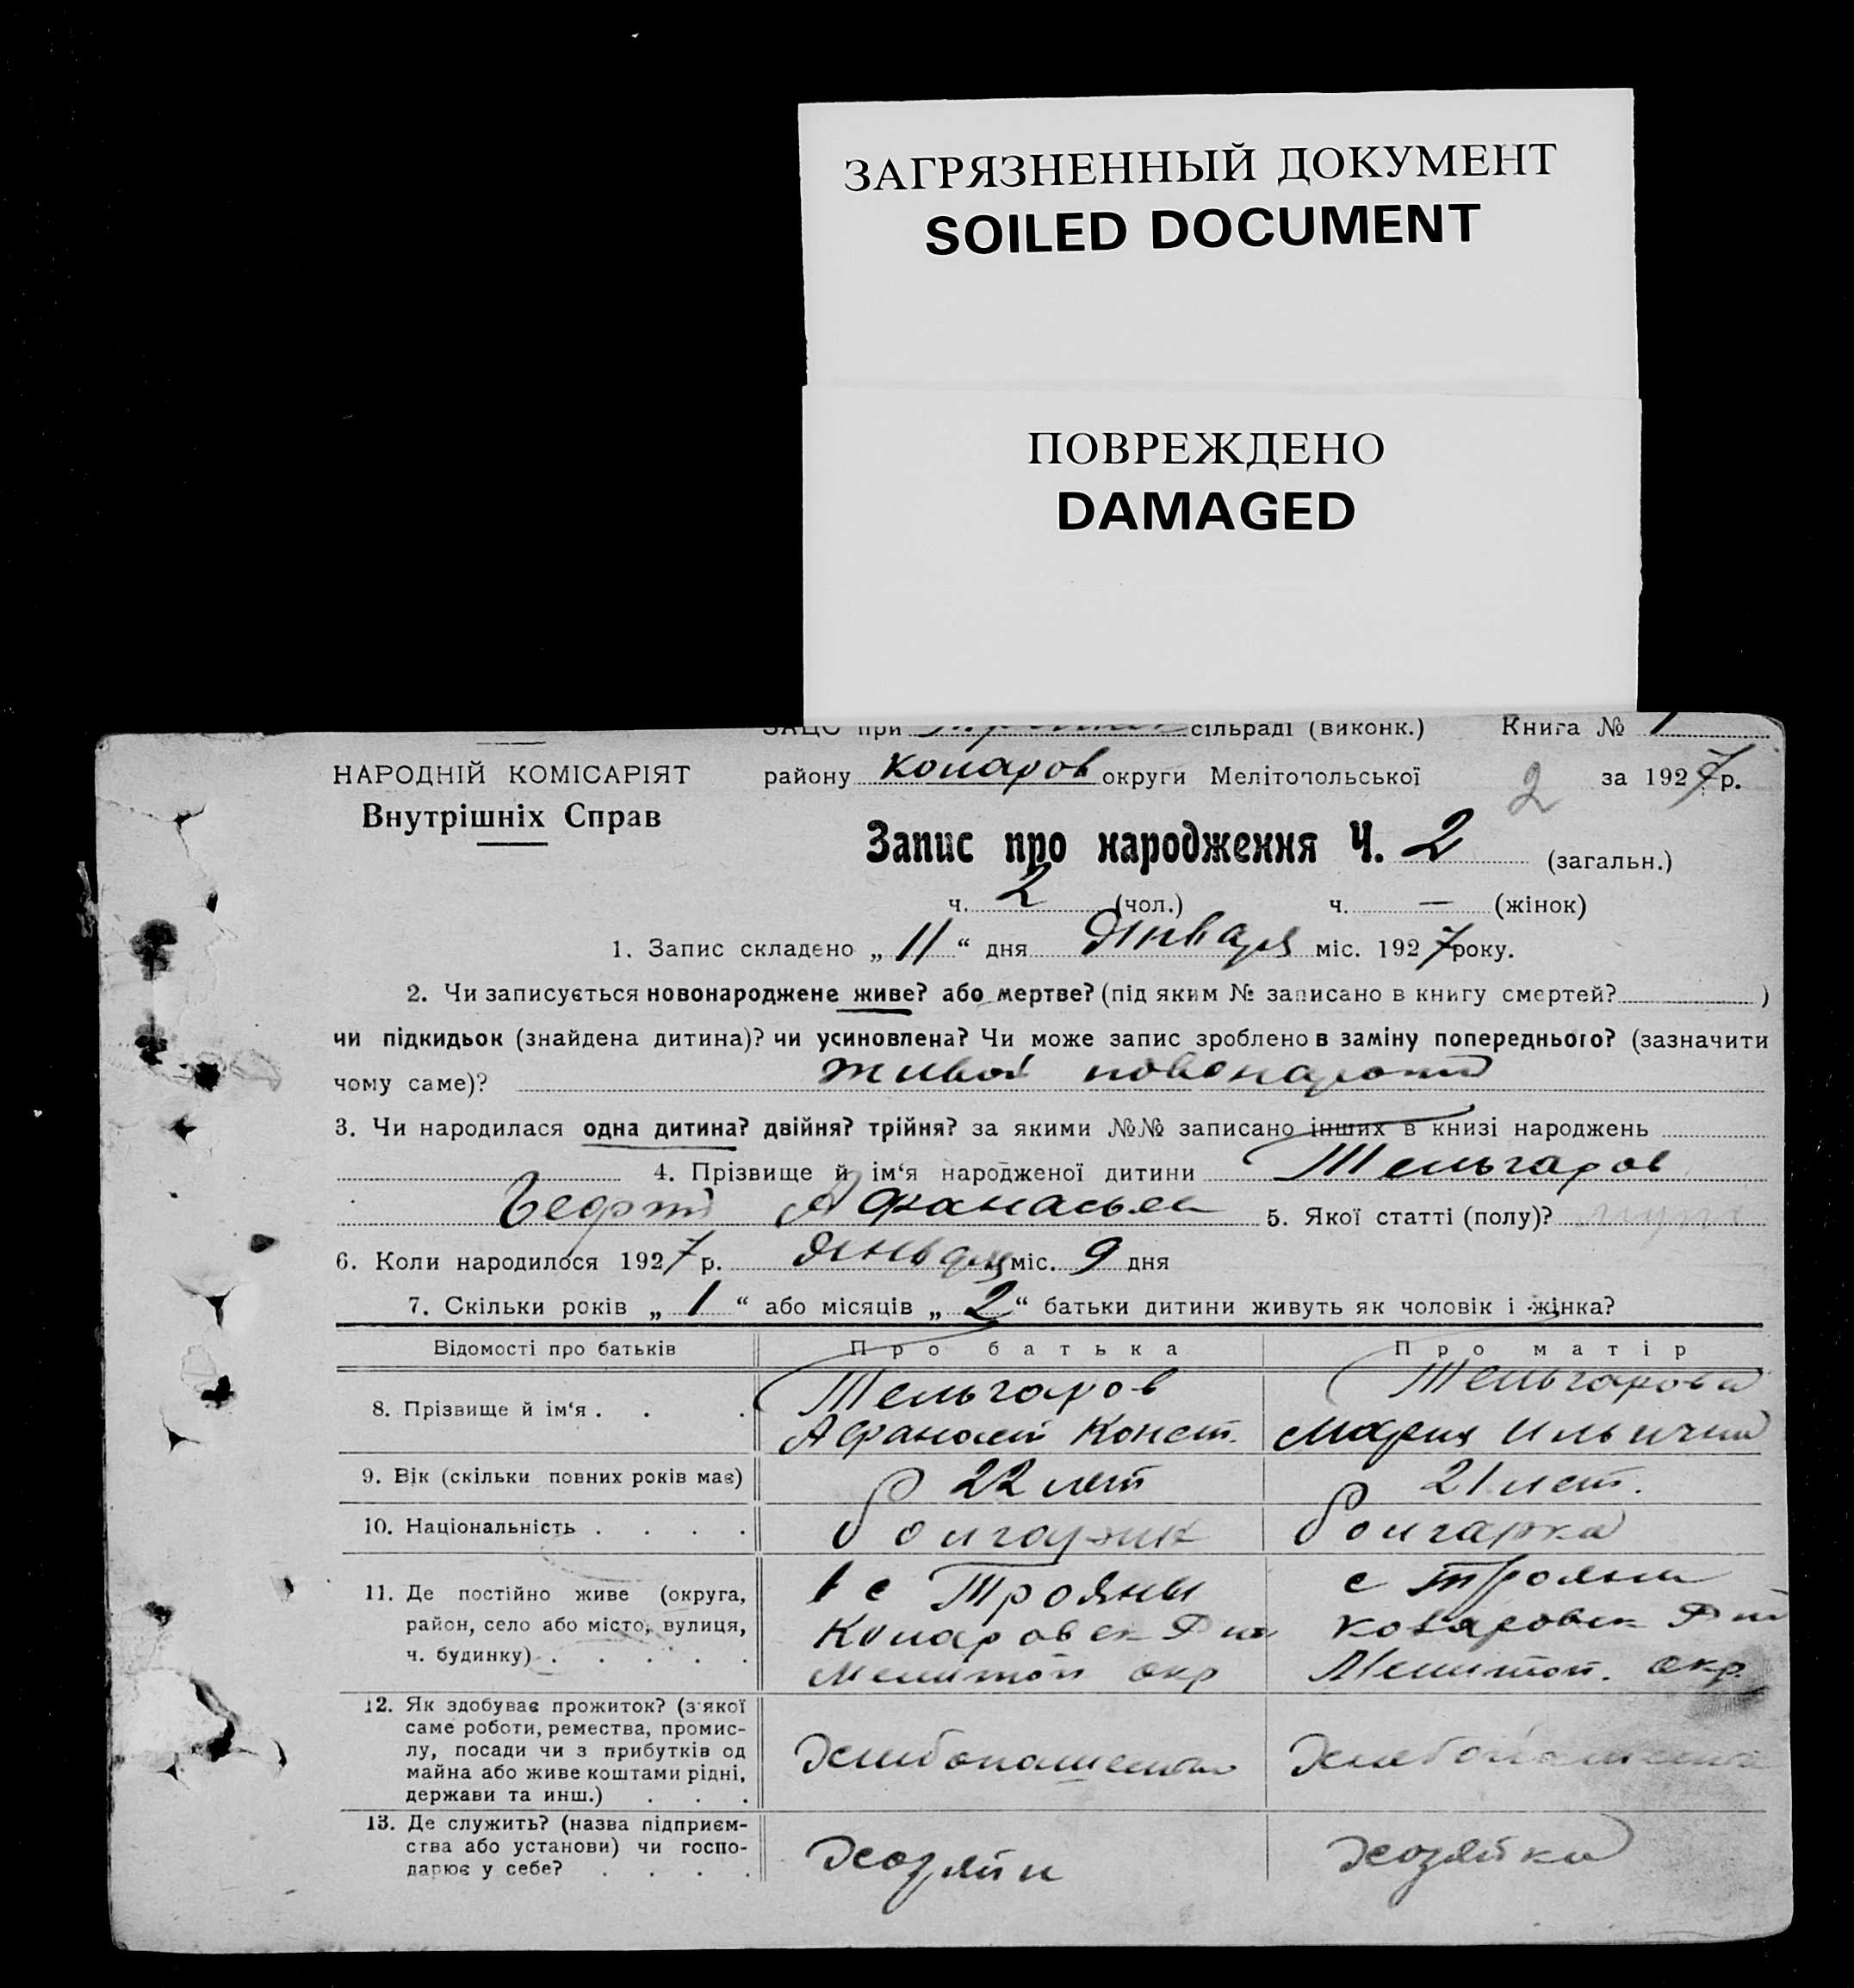 ЗАГРЯЗНЕННЫЙ ДОКУМЕНТ
SOILED DOCUMENT
ПОВРЕЖДЕНО
DAMAGED
ЗАЦС при сільраді (виконк.) Книга № 1
НАРОДНІЙ КОМІСАРІЯТ
району Коларов округи Мелітопольської 2 за 1927 р.
Внутрішніх Справ
Запис про народження Ч. 2 (загальн.)
ч. 2 (чол.) ч. — (жінок)
1. Запис складено „ 11 “ дня Января міс. 1927 року.
2. Чи записується новонароджене живе? або мертве? (під яким № записано в книгу смертей? )
чи підкидьок (знайдена дитина)? чи усиновлена? Чи може запис зроблено в заміну попереднього? (зазначити
чому саме)? живой
3. Чи народилася одна дитина? двійня? трійня? за якими №№ записано інших в книзі народжень
4. Прізвище й ім‘я народженої дитини Тельгаров
5. Якої статті (полу)?
6. Коли народилося 1927 р. Января міс. 9 дня
7. Скільки років „ 1 “ або місяців „ 2 “ батьки дитини живуть як чоловік і жінка?
Відомості про батьків Про батька Про матір
8. Прізвище й ім‘я . . . Тельгаров Тельгарова
Афанасий Конст. Мария
9. Вік (скільки повних років має) 22 лет 21 лет.
10. Національність . . . . болгарин болгарка
11. Де постійно живе (округа, с Трояны с Трояны
район, село або місто, вулиця, Коларовск Коларовск
ч. будинку) . . . . . Мелитоп окр Мелитоп. окр.
12. Як здобуває прожиток? (з якої
саме роботи, ремества, промис-
лу, посади чи з прибутків од
майна або живе коштами рідні,
держави та инш.) . . .
13. Де служить? (назва підприєм-
ства або установи) чи госпо- Хозяин Хозяйка
дарює у себе? . . . .